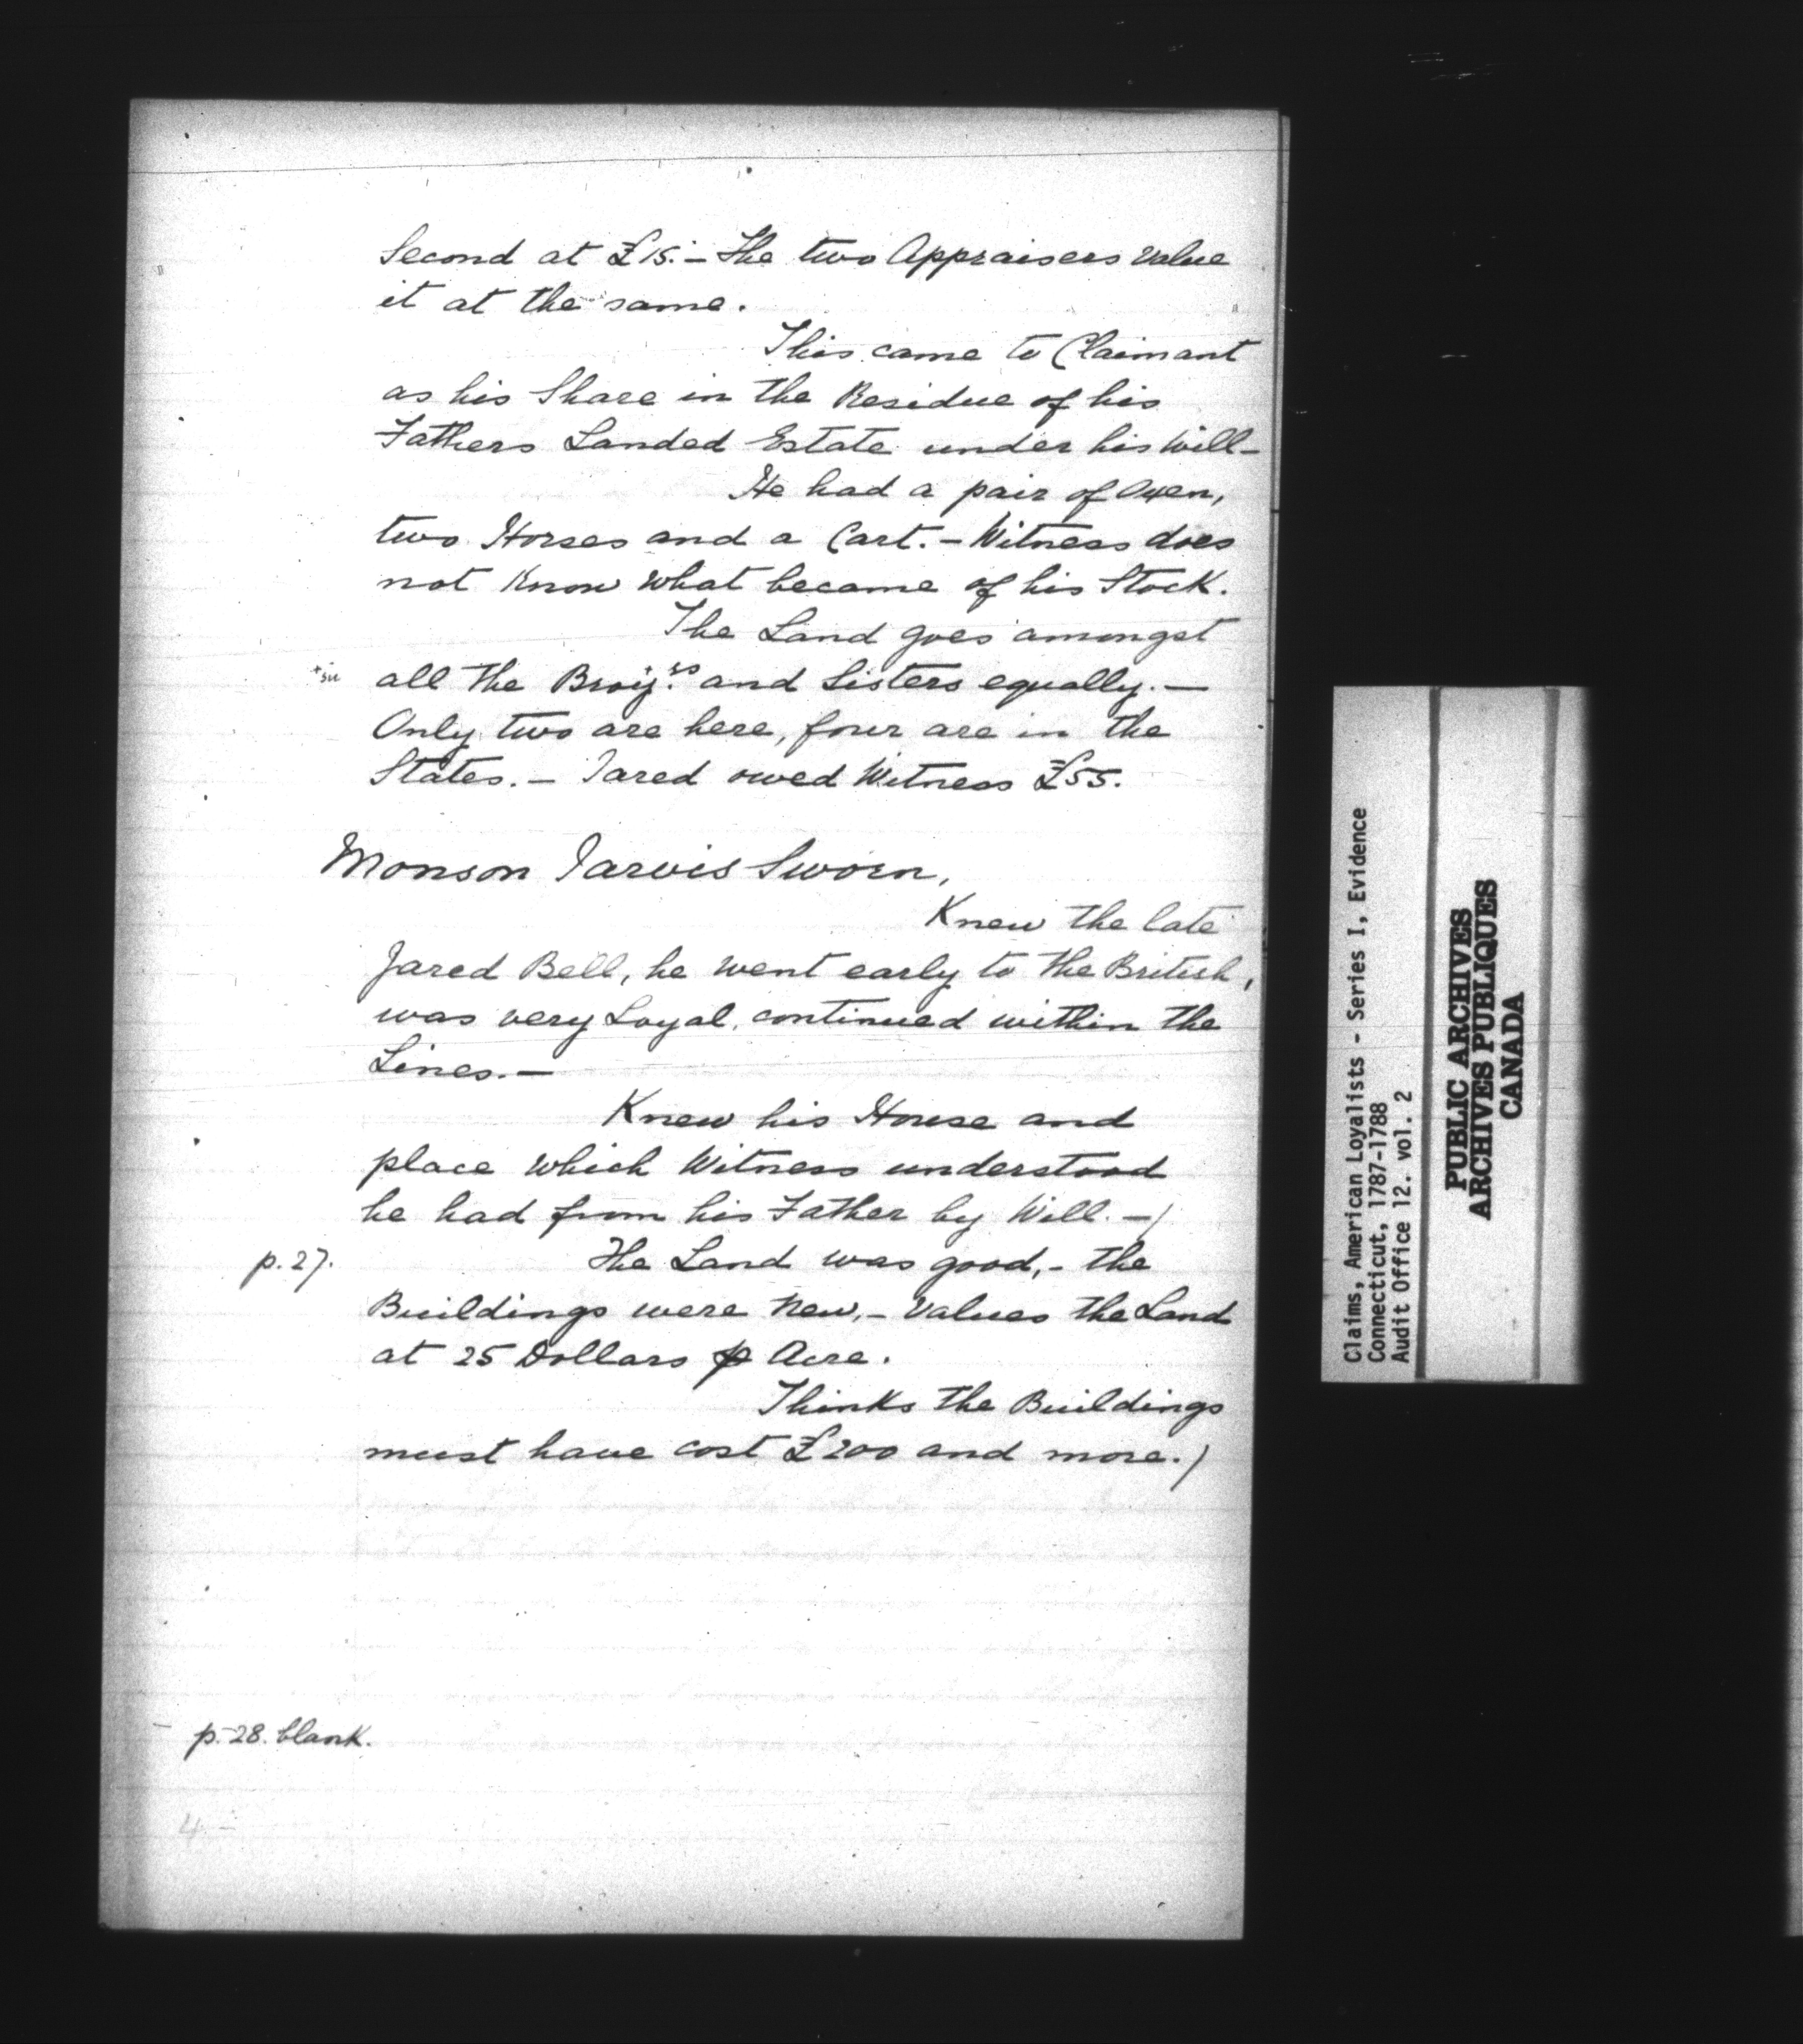 Second at £15.- The two Appraisers value
it at the same.
This came to Claimant
as his Share in the Residue of his
Fathers Landed Estate under his Will-
He had a pair of Oxen,
two Horses and a Cart.- Witness does
not Know what became of his Stock.
The Land goes amongst
all the and Sisters equally.-
Only two are here, four are in the
States.- Jared owed Witness £55.
Monson Jarvis Sworn,
Knew the late
Jared Bell, he went early to the British,
was very Loyal, continued within the
Lines.-
Knew his House and
place which Witness understood
he had from his Father by Will.-)
p. 27. The Land was good,- the
Buildings were New,- Values the Land
at 25 Dollars p Acre.
Thinks the Buildings
must have cost £200 and more.)
p. 28. blank.
Claims, American Loyalists - Series I, Evidence
Connecticut, 1787-1788
Audit Office 12. vol. 2
PUBLIC ARCHIVES
ARCHIVES PUBLIQUES
CANADA